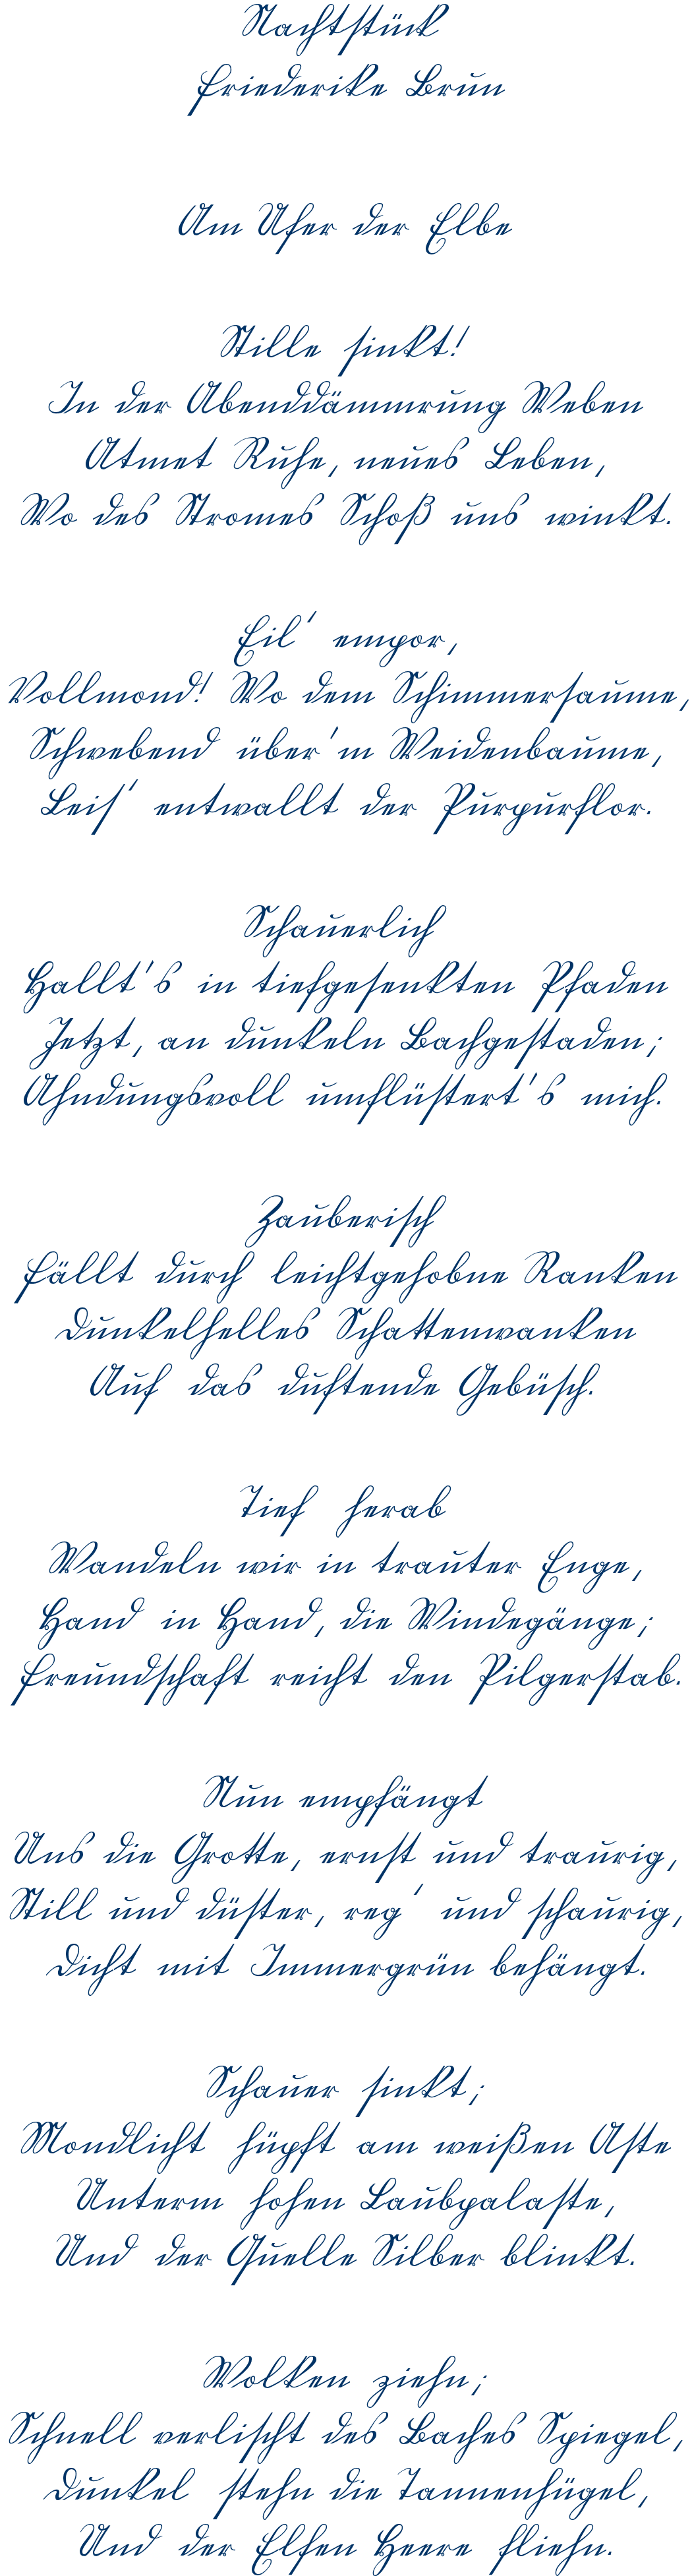 Nachtstück
Friederike Brun
Am Ufer der Elbe
Stille sinkt!
In der Abenddämmrung Weben
Atmet Ruhe, neues Leben,
Wo des Stromes Schoß uns winkt.
Eil' empor,
Vollmond! Wo dem Schimmersaume,
Schwebend über'm Weidenbaume,
Leis' entwallt der Purpurflor.
Schauerlich
Hallt's in tiefgesenkten Pfaden
Jetzt, an dunkeln Bachgestaden;
Ahndungsvoll umflüstert's mich.
Zauberisch
Fällt durch leichtgehobne Ranken
Dunkelhelles Schattenwanken
Auf das duftende Gebüsch.
Tief herab
Wandeln wir in trauter Enge,
Hand in Hand, die Windegänge;
Freundschaft reicht den Pilgerstab.
Nun empfängt
Uns die Grotte, ernst und traurig,
Still und düster, reg' und schaurig,
Dicht mit Immergrün behängt.
Schauer sinkt;
Mondlicht hüpft am weißen Aste
Unterm hohen Laubpalaste,
Und der Quelle Silber blinkt.
Wolken ziehn;
Schnell verlischt des Baches Spiegel,
Dunkel stehn die Tannenhügel,
Und der Elfen Heere fliehn.